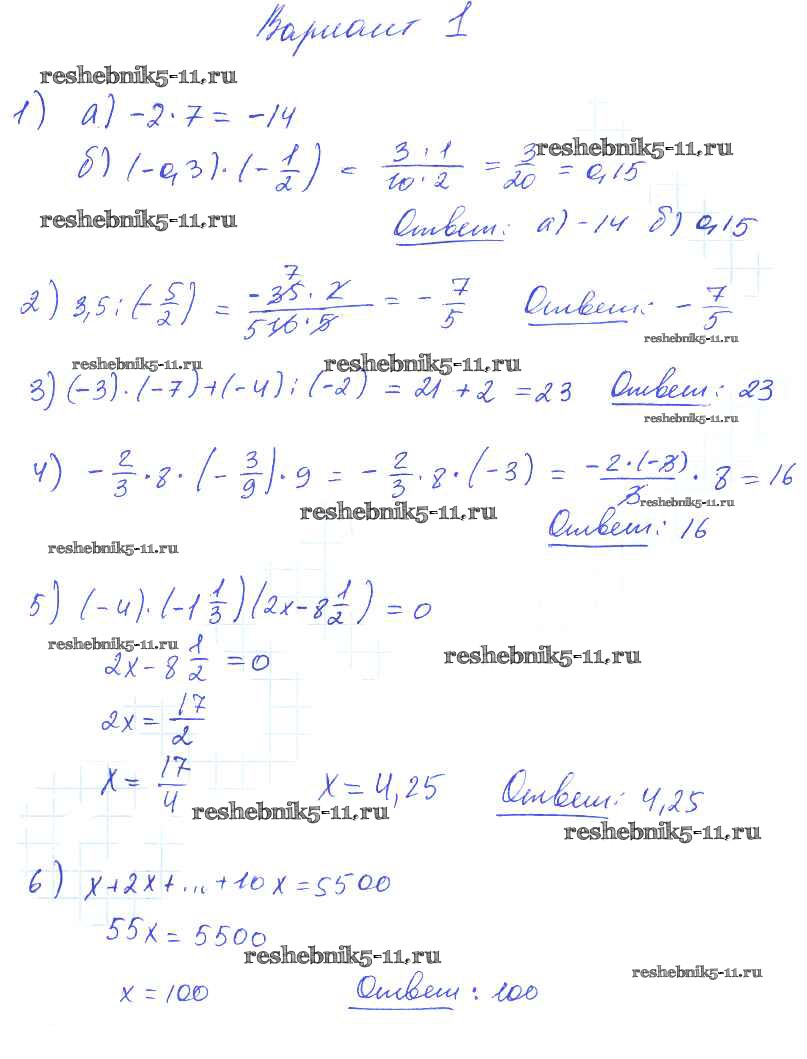 Вариант 1
reshebnik5-11.ru
1) а) -2 · 7 = -14
б) (-0,3) · (-1/2) = 3 · 1 / 10 · 2 = 3/20 = 0,15
reshebnik5-11.ru
reshebnik5-11.ru
Ответ: а) -14 б) 0,15
2) 3,5 : (-5/2) = -35 · 2 / 10 · 5 = -7/5 Ответ: -7/5
reshebnik5-11.ru
reshebnik5-11.ru
reshebnik5-11.ru
3) (-3) · (-7) + (-4) : (-2) = 21 + 2 = 23 Ответ: 23
reshebnik5-11.ru
4) -2/3 · 8 · (-3/9) · 9 = -2/3 · 8 · (-3) = -2 · (-3) / 3 · 8 = 16
reshebnik5-11.ru
reshebnik5-11.ru
Ответ: 16
reshebnik5-11.ru
5) (-4) · (-1 1/3) (2x - 8 1/2) = 0
reshebnik5-11.ru
reshebnik5-11.ru
2x - 8 1/2 = 0
2x = 17/2
x = 17/4 x = 4,25 Ответ: 4,25
reshebnik5-11.ru
reshebnik5-11.ru
6) x + 2x + ... + 10x = 5500
55x = 5500
reshebnik5-11.ru
reshebnik5-11.ru
x = 100 Ответ: 100